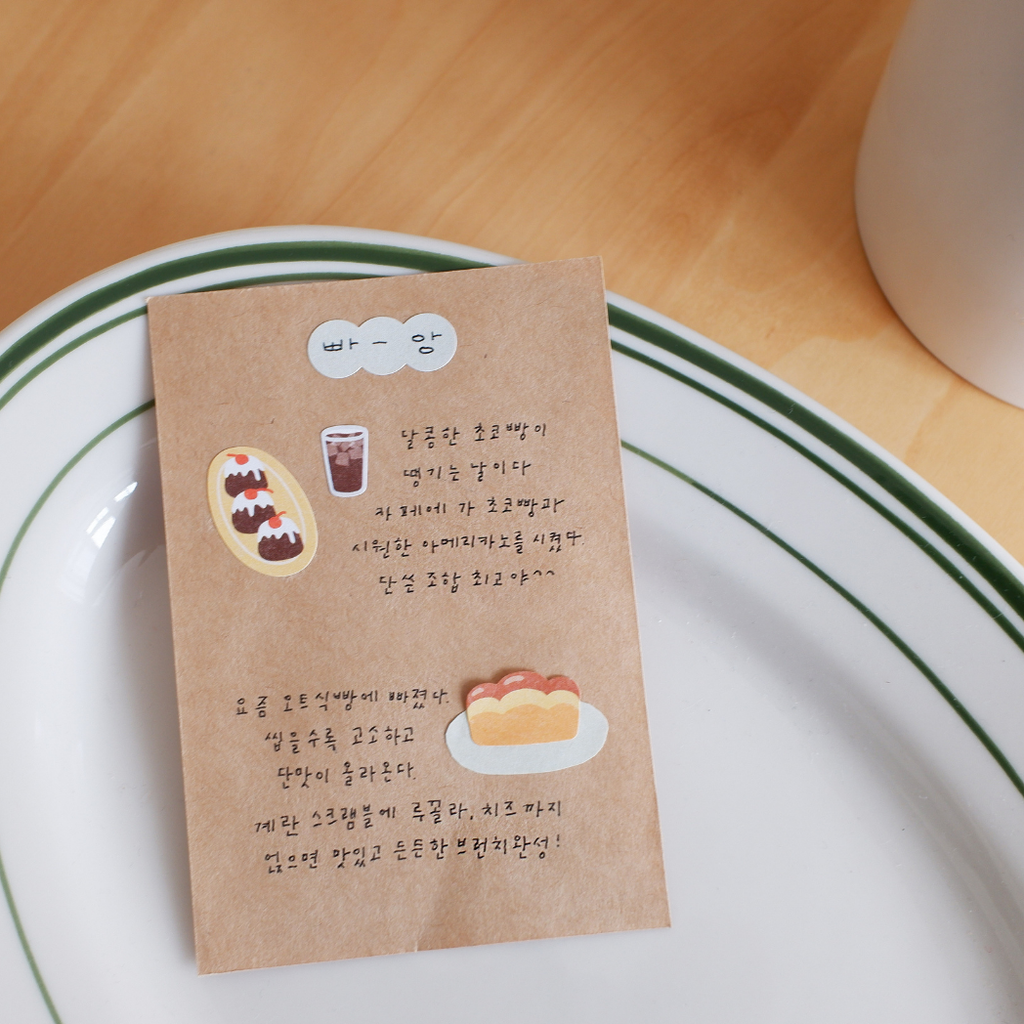 빠 - 앙
달콤한 초코빵이
땡기는 날이다
카페에 가 초코빵과
시원한 아메리카노를 시켰다.
단쓴 조합 최고야^^
요즘 오트식빵에 빠졌다.
씹을수록 고소하고
단맛이 올라온다.
계란 스크램블에 루꼴라, 치즈까지
얹으면 맛있고 든든한 브런치완성!